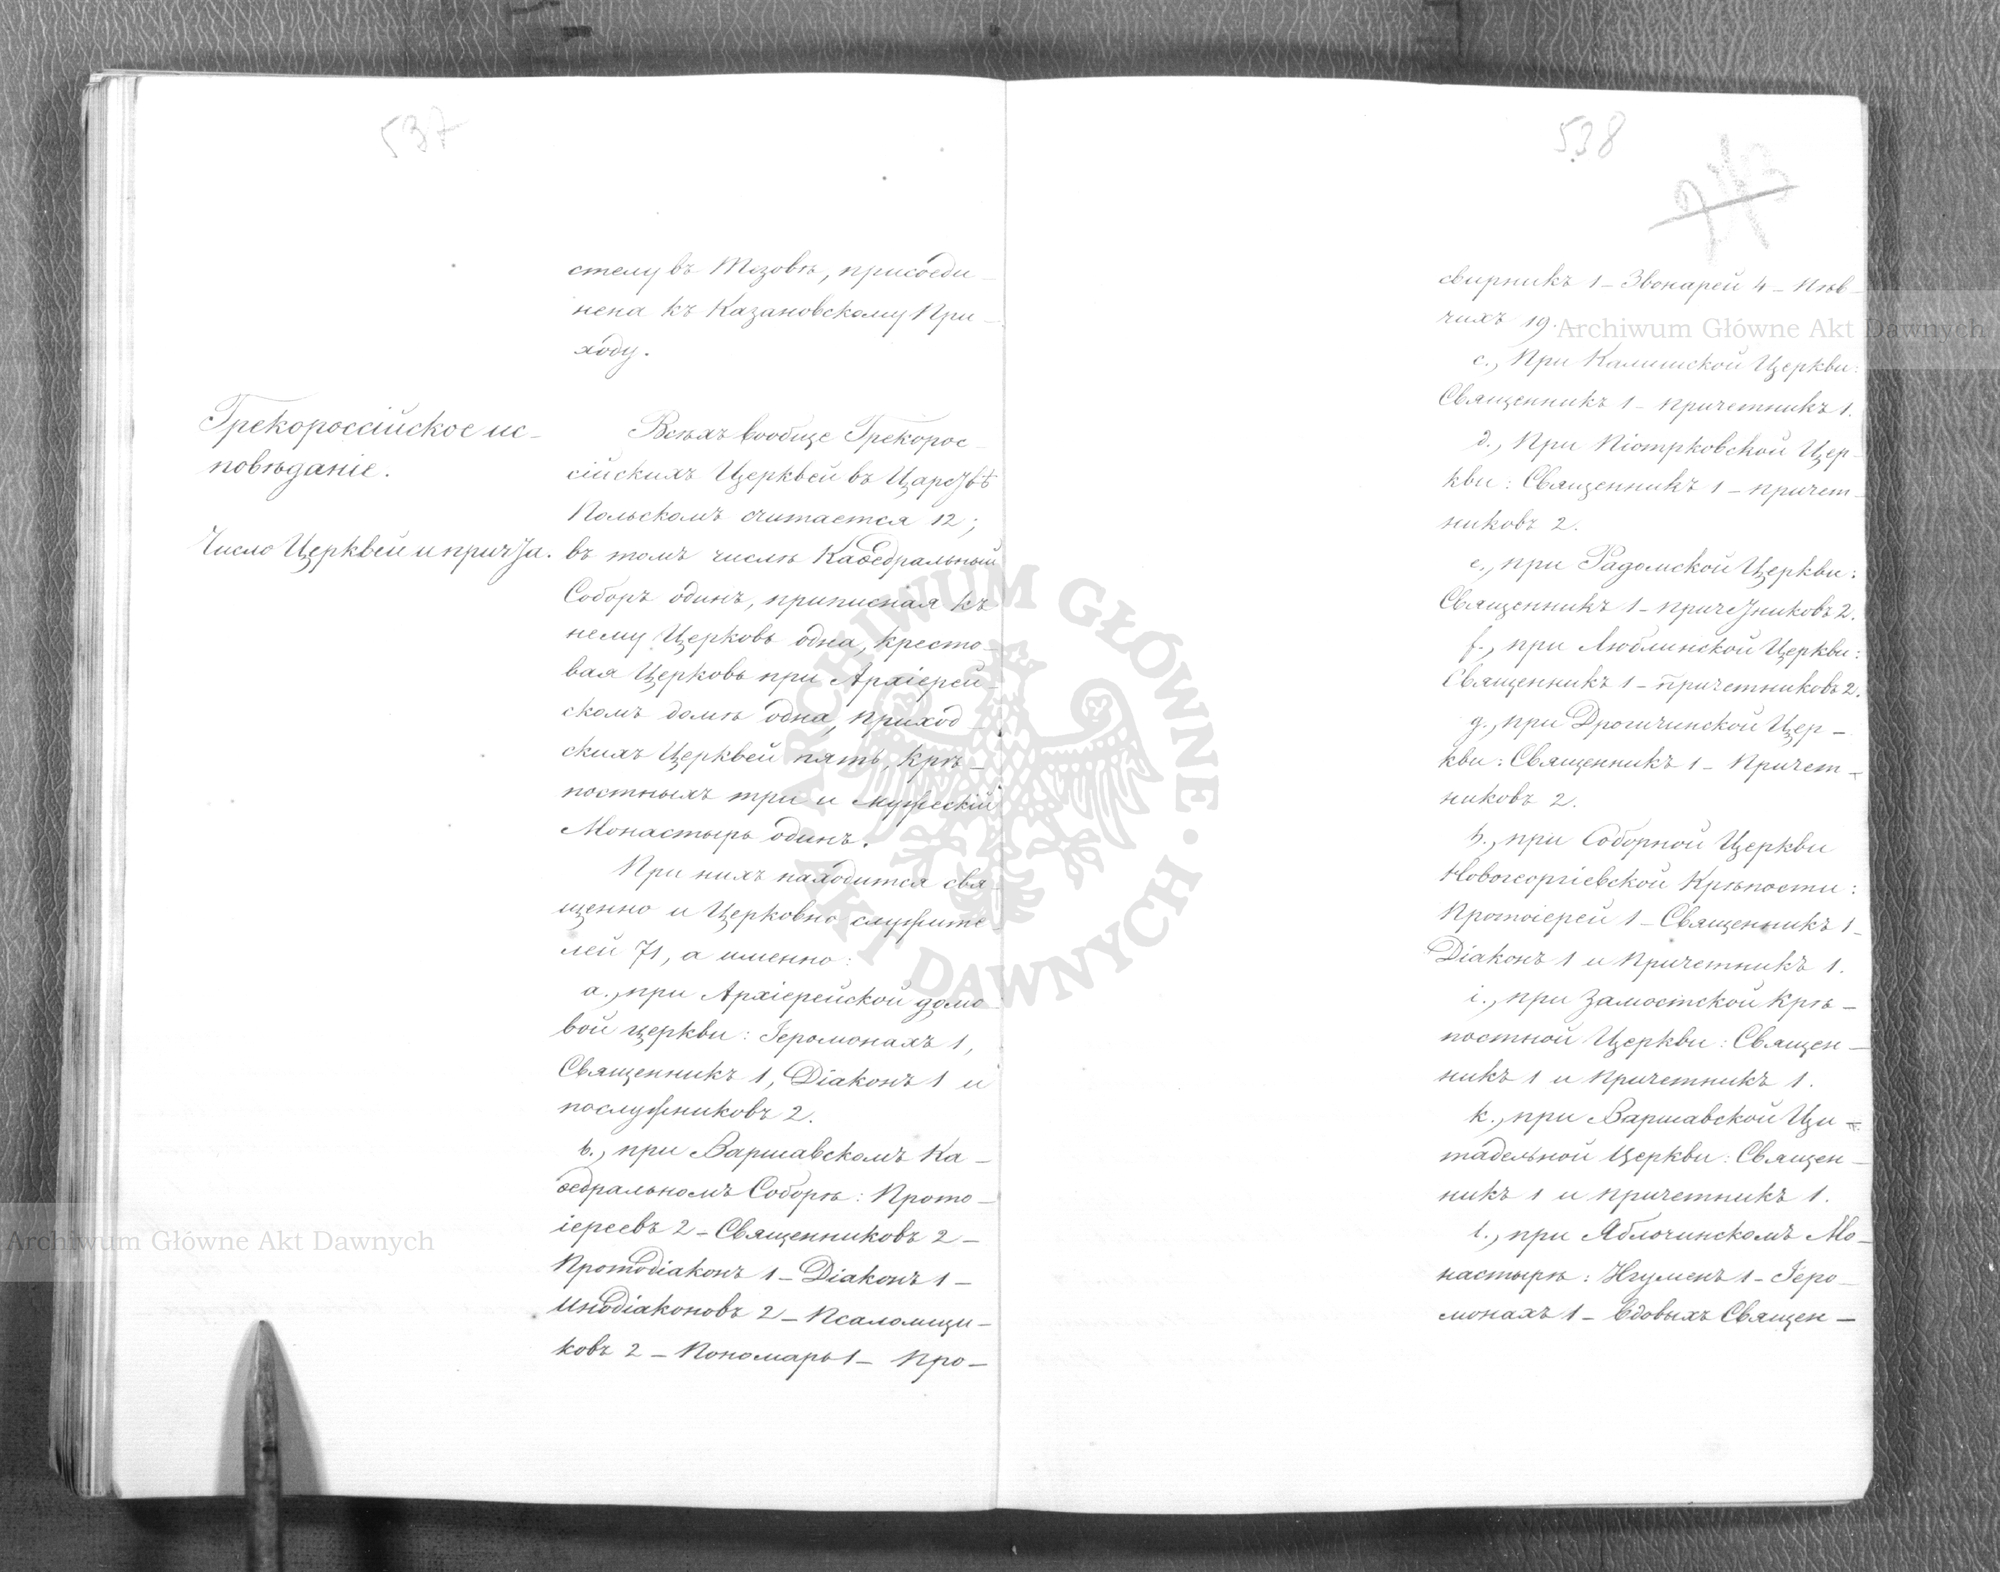 537
стелу въ Тозовѣ, присоеди-
нена къ Казановскому При-
ходу.
Грекороссійское ис-
повѣданіе.
Число Церквей и причта.
Всѣхъ вообще Грекорос-
сійскихъ Церквей въ Царствѣ
Польскомъ считается 12;
въ томъ числѣ Каѳедральный
Соборъ одинъ, приписная къ
нему Церковь одна, кресто-
вая Церковь при Архіерей-
скомъ домѣ одна, приход-
скихъ Церквей пять, крѣ-
постныхъ три и мужескій
Монастырь одинъ.
При нихъ находится свя-
щенно и Церковно служите-
лей 71, а именно:
a., при Архіерейской домо-
вой церкви: Іеромонахъ 1,
Священникъ 1, Діаконъ 1 и
послужниковъ 2.
b., при Варшавскомъ Ка-
ѳедральномъ Соборѣ: Прото-
іереевъ 2 - Священниковъ 2 -
Протодіаконъ 1 - Діаконъ 1 -
Иподіаконовъ 2 - Псаломщи-
ковъ 2 - Пономарь 1 - Про-
538
273
свирникъ 1 - Звонарей 4 - Пѣв-
чихъ 19.
c., При Калишской Церкви:
Священникъ 1 - причетникъ 1.
d., При Піотрковской Цер-
кви: Священникъ 1 - причет-
никовъ 2.
e., при Радомской Церкви:
Священникъ 1 - причетниковъ 2.
f., при Люблинской Церкви:
Священникъ 1 - причетниковъ 2.
g., при Дрогичинской Цер-
кви: Священникъ 1 - Причет-
никовъ 2.
h., при Соборной Церкви
Новогеоргіевской Крѣпости:
Протоіерей 1 - Священникъ 1 -
Діаконъ 1 и Причетникъ 1.
i., при Замостской Крѣ-
постной Церкви: Священ-
никъ 1 и Причетникъ 1.
k., при Варшавской Ци-
тадельной Церкви: Священ-
никъ 1 и причетникъ 1.
l., при Яблочинскомъ Мо-
настырѣ: Игуменъ 1 - Іеро-
монахъ 1 - вдовыхъ Священ-
Archiwum Główne Akt Dawnych
Archiwum Główne Akt Dawnych
ARCHIWUM GŁÓWNE AKT DAWNYCH